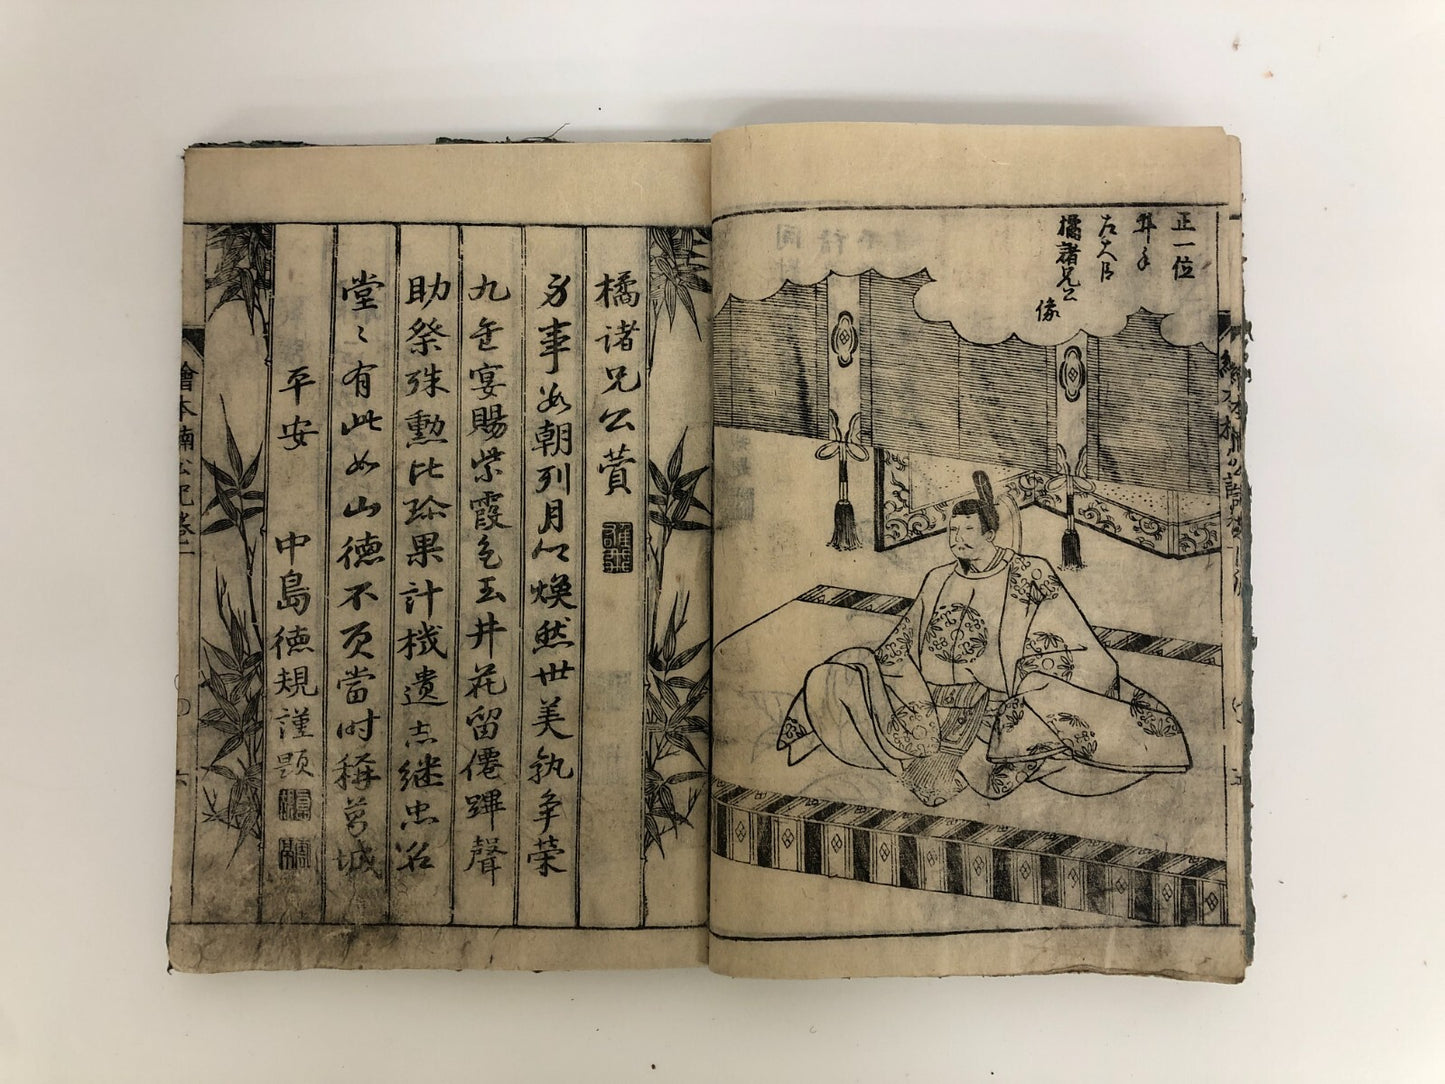 正一位
井手
左大臣
橘諸兄公
像
橘諸兄公賛
事朝列月煥然世美孰争栄
九重宴賜紫霞色玉井花留僊蹕聲
助祭殊勲比珎果計機遺志継忠名
堂〻有此如山徳不負當时稱葛城
平安 中島徳規謹題
繪本楠公記巻二
六